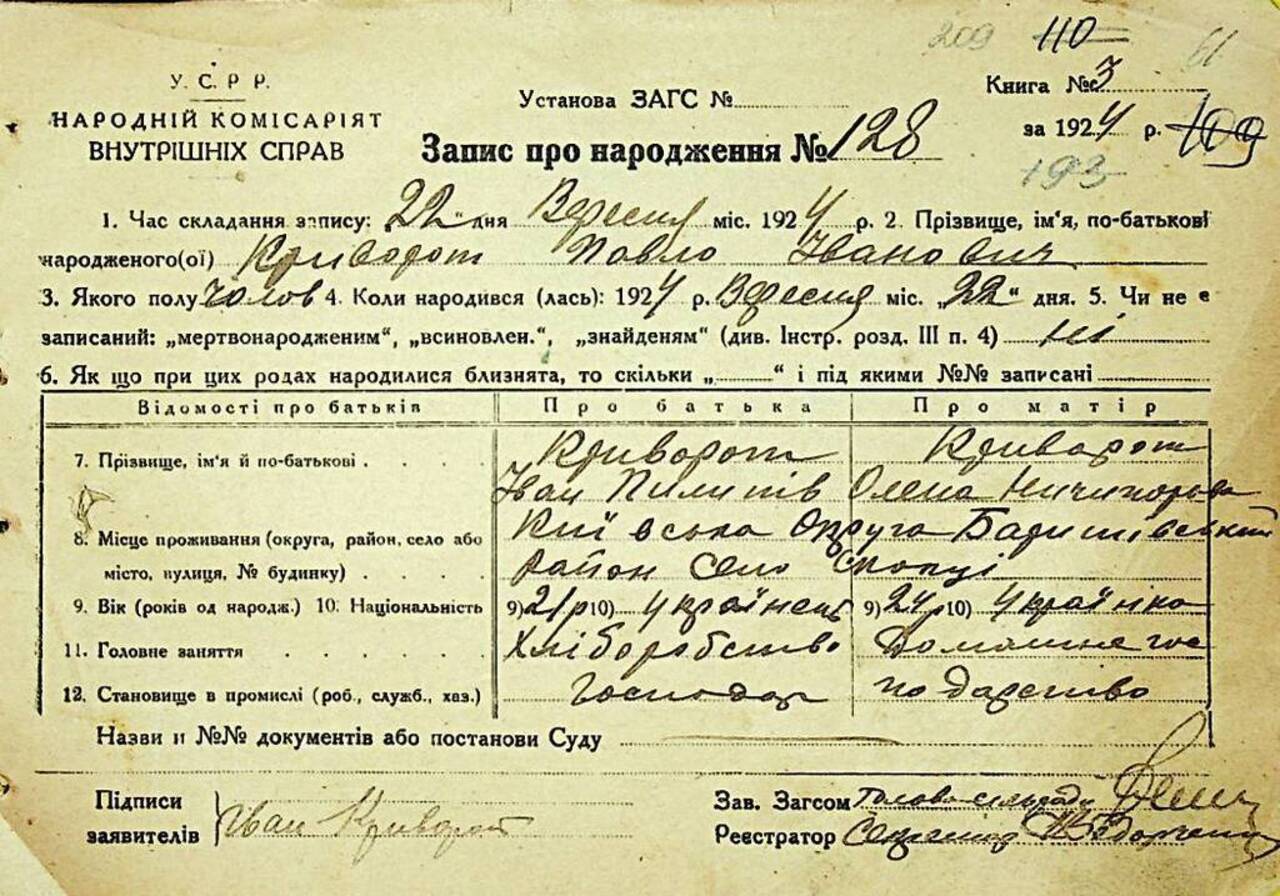 209 110 61
У. С. Р Р.
НАРОДНІЙ КОМІСАРІЯТ
ВНУТРІШНІХ СПРАВ
Установа ЗАГС №
Книга № 3
за 1924 р. 109
193
Запис про народження № 128
1. Час складання запису: 22 " дня Вересня міс. 1924 р. 2. Прізвище, ім'я, по-батькові
народженого(ої) Криворот Павло Іванович
3. Якого полу чолов 4. Коли народився (лась): 1924 р. Вересня міс. „22" дня. 5. Чи не є
записаний: „мертвонародженим", „всиновлен.", „знайденям" (див. Інстр. розд. III п. 4) ні
6. Як що при цих родах народилися близнята, то скільки „ " і під якими №№ записані
Відомості про батьків Про батька Про матір
7. Прізвище, ім'я й по-батькові . . . . Криворот Криворот
Іван Пилипів Олена Ничипорова
8. Місце проживання (округа, район, село або Київська Округа Баришівський
місто, вулиця, № будинку) . . . . район Село Скопці
9. Вік (років од народж.) 10. Національність 9) 21 р 10) українець 9) 24 р 10) українка
11. Головне заняття . . . . . . Хліборобство Домашне гос
12. Становище в промислі (роб., служб., хаз.) господар подарство
Назви и №№ документів або постанови Суду
Підписи
заявителів Іван Криворот
Зав. Загсом Голова сільради
Реєстратор Секретар